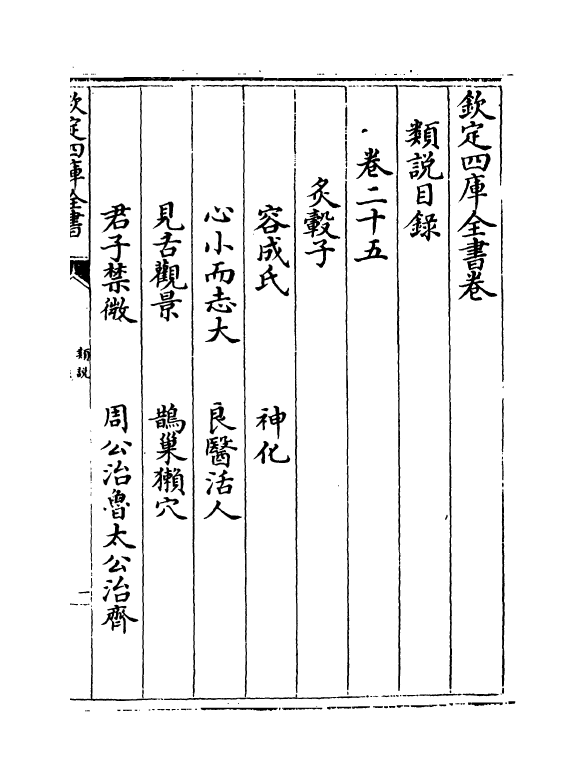 欽定四庫全書卷
類説目錄
卷二十五
炙轂子
容成氏　神化
心小而志大　良醫活人
見舌觀景　鵲巢獺穴
君子禁微　周公治魯太公治齊
欽定四庫全書
類説
一